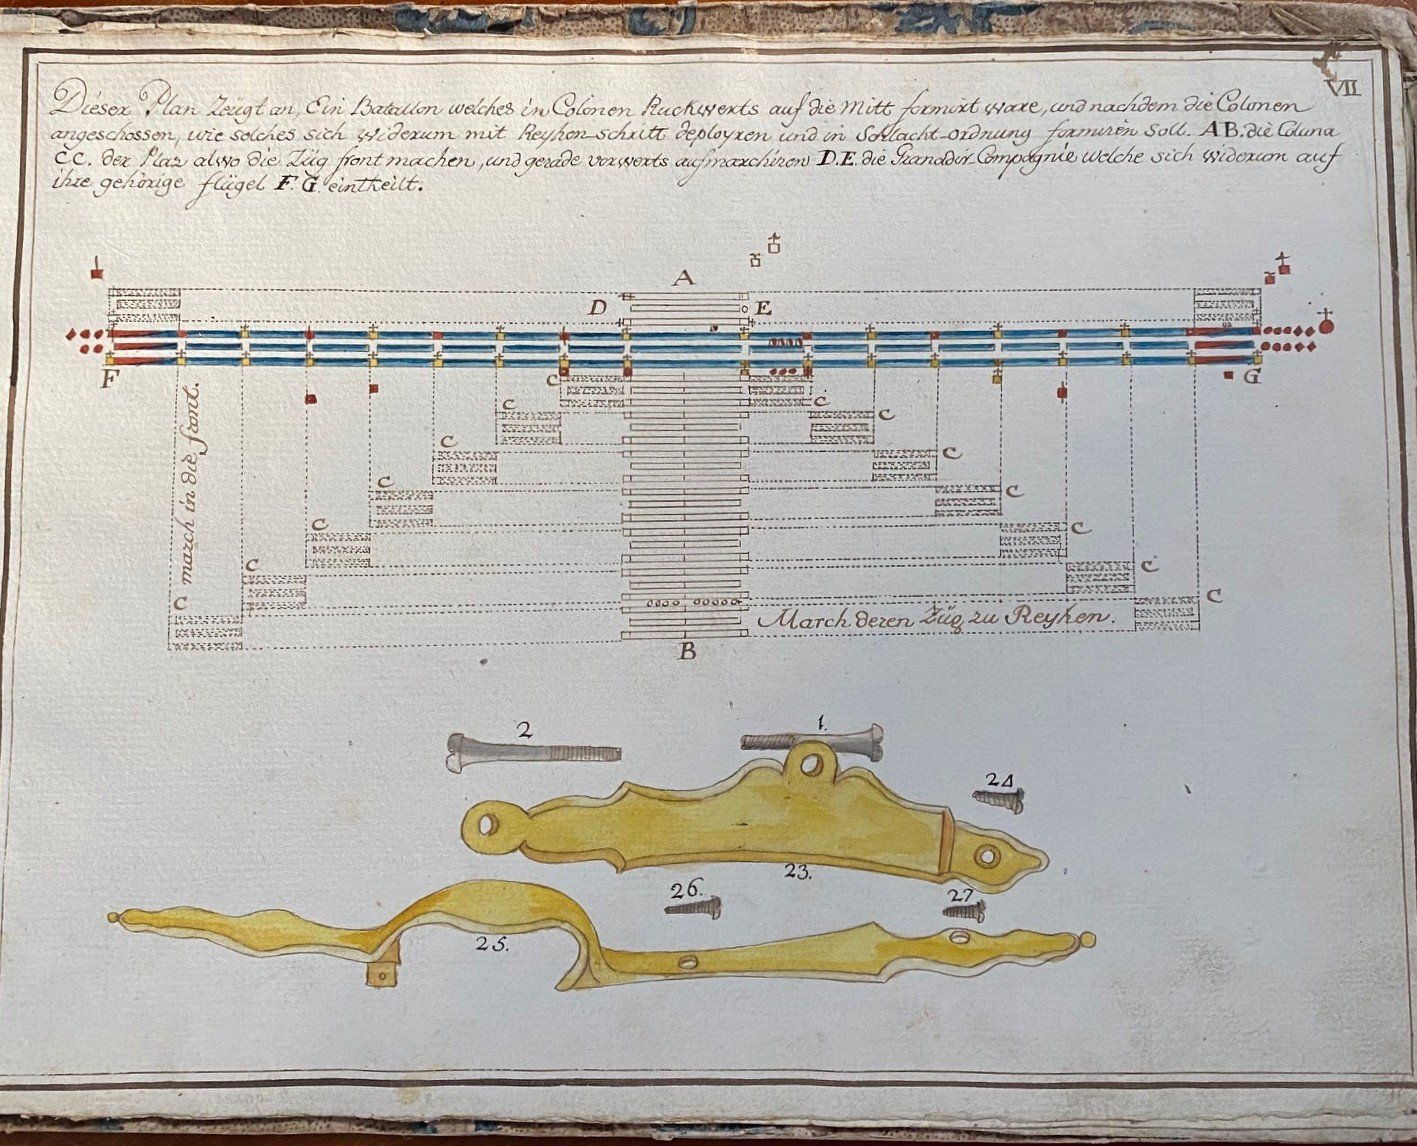 VII
Dieser Plan Zeigt an, Ein Batallon welches in Colonen Ruckwerts auf die Mitt formirt ware, und nachdem die Colonen
angeschossen, wie solches sich widerum mit Reyhen-schritt deployren und in Schlacht-ordnung formiren soll. AB. die Coluna
C.C. der Plaz alwo die Züg front machen, und gerade vorwerts aufmarchiren D.E. die Granadir Compagnie welche sich widerum auf
ihre gehörige flügel F. G. eintheilt.
A
D E
F G
C
C C
C C
C C
C C
C C
C C
C C
march in die front.
March deren Züg zu Reyhen.
B
2 1.
24
23.
26. 27
25.